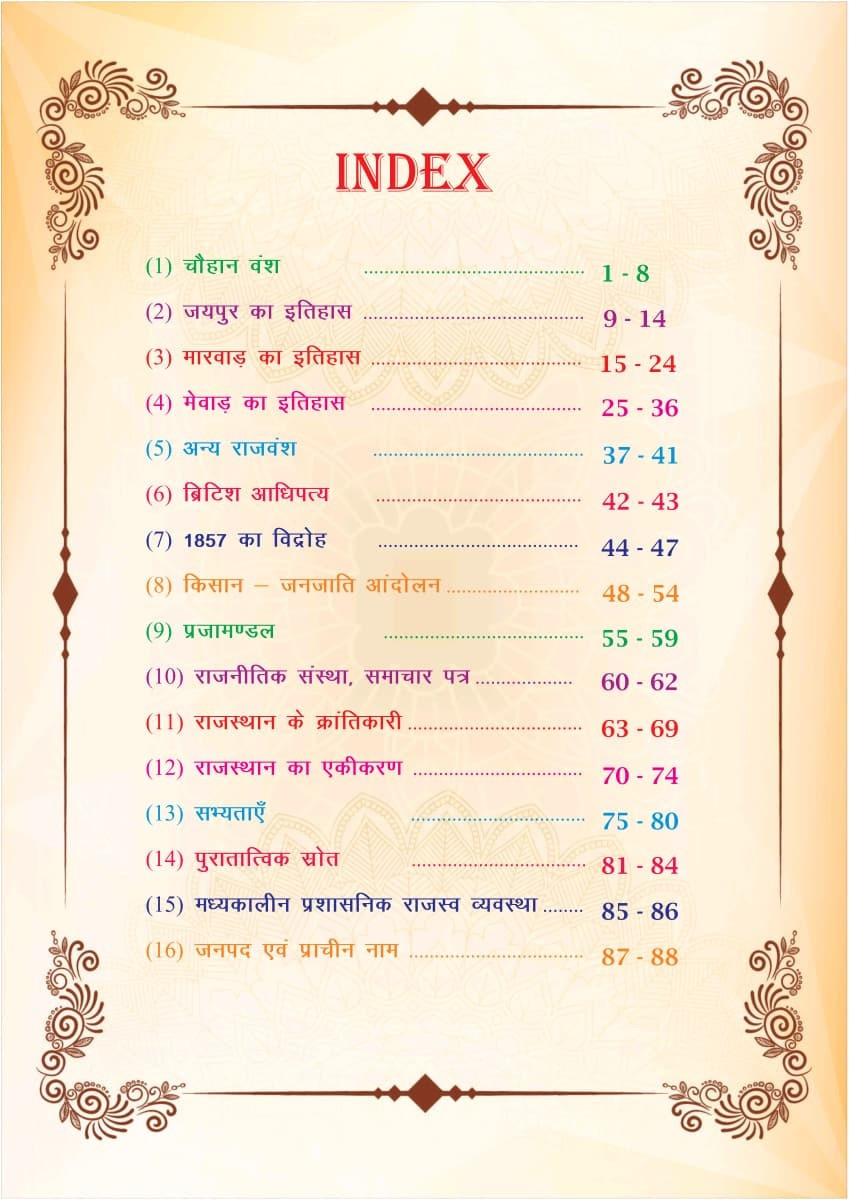 INDEX
(1) चौहान वंश ........................................ 1 - 8
(2) जयपुर का इतिहास ........................................ 9 - 14
(3) मारवाड़ का इतिहास ...................................... 15 - 24
(4) मेवाड़ का इतिहास ...................................... 25 - 36
(5) अन्य राजवंश ...................................... 37 - 41
(6) ब्रिटिश आधिपत्य ..................................... 42 - 43
(7) 1857 का विद्रोह .................................... 44 - 47
(8) किसान – जनजाति आंदोलन ........................ 48 - 54
(9) प्रजामण्डल .................................... 55 - 59
(10) राजनीतिक संस्था, समाचार पत्र .................. 60 - 62
(11) राजस्थान के क्रांतिकारी ............................... 63 - 69
(12) राजस्थान का एकीकरण .............................. 70 - 74
(13) सभ्यताएँ ............................... 75 - 80
(14) पुरातात्विक स्रोत ............................... 81 - 84
(15) मध्यकालीन प्रशासनिक राजस्व व्यवस्था ........ 85 - 86
(16) जनपद एवं प्राचीन नाम ............................... 87 - 88